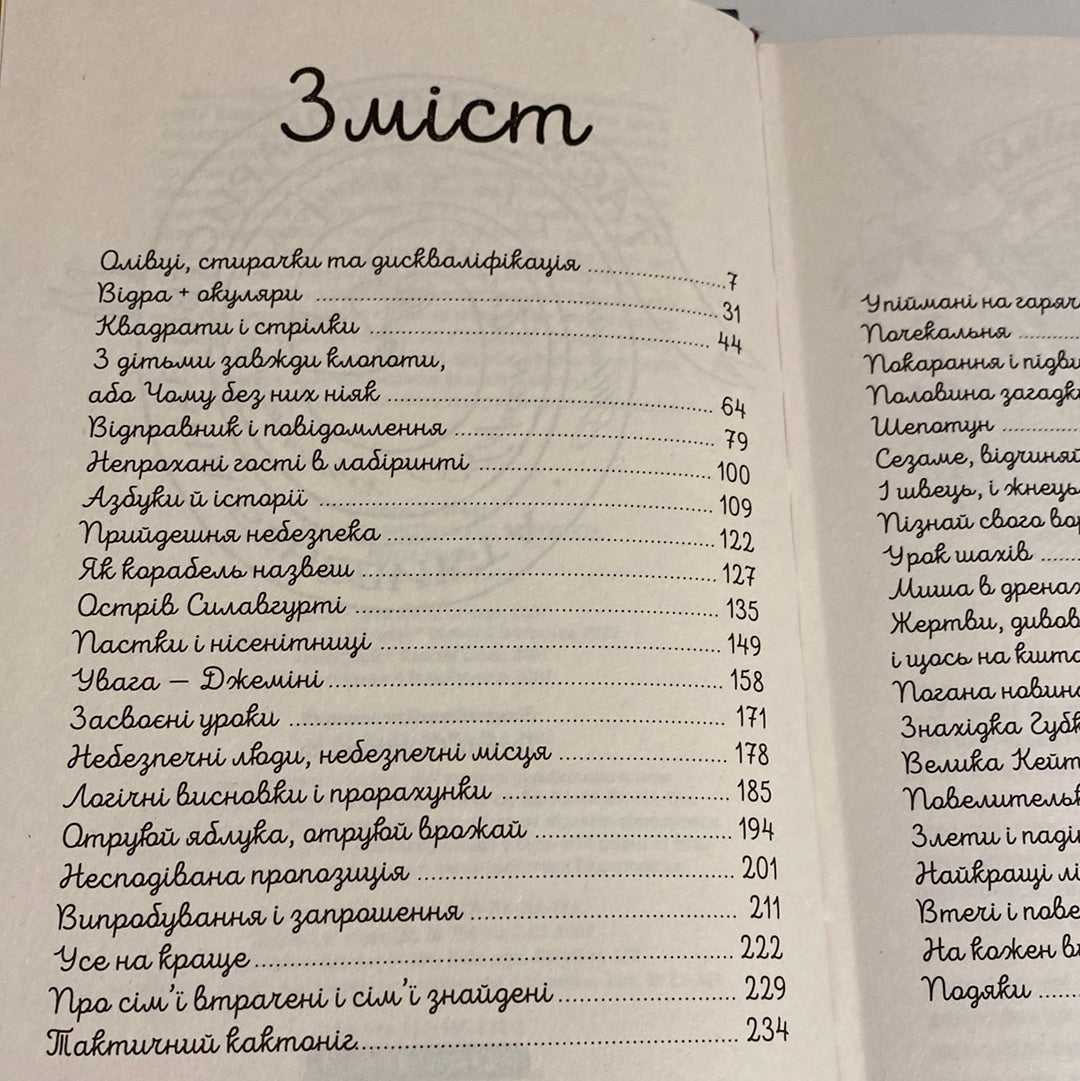 Зміст
Олівці, стирачки та дискваліфікація ........ 7
Відра + окуляри ........ 31
Квадрати і стрілки ........ 44
З дітьми завжди клопоти,
або Чому без них ніяк ........ 64
Відправник і повідомлення ........ 79
Непрохані гості в лабіринті ........ 100
Азбуки й історії ........ 109
Прийдешня небезпека ........ 122
Як корабель назвеш ........ 127
Острів Силавгурті ........ 135
Пастки і нісенітниці ........ 149
Увага — Джеміні ........ 158
Засвоєні уроки ........ 171
Небезпечні люди, небезпечні місця ........ 178
Логічні висновки і прорахунки ........ 185
Отруйой яблука, отруйой врожай ........ 194
Несподівана пропозиція ........ 201
Випробування і запрошення ........ 211
Усе на краще ........ 222
Про сім’ї втрачені і сім’ї знайдені ........ 229
Тактичний кактоніг ........ 234
Упіймані на гаряч
Почекальня ........
Покарання і підви
Половина загадк
Шепотун ........
Сезаме, відчиняй
І швець, і жнець
Пізнай свого вор
Урок шахів ........
Миша в дренаж
Жертви, дивов
і щось на кшта
Погана новин
Знахідка Губк
Велика Кейт
Повелительк
Злети і паді
Найкращі лі
Втечі і пове
На кожен ви
Подяки ........